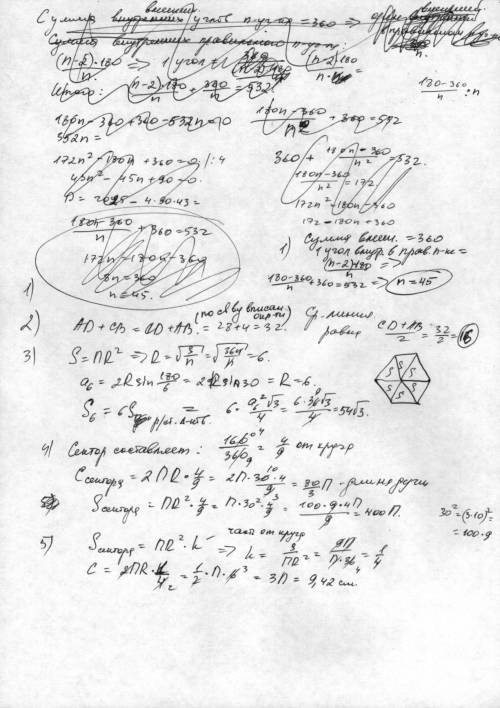 внешн.
Сумма внутренних углов n-угол = 360 ⇒
Сумма внутренних правильного n-угу:
(n-2)·180 / n ⇒ 1 угол =
(n-2)180
Итого: (n-2)·180 / n + 360 / n = 532
180-360 / n : n
180n-360+360-532n=0
180n-360 + 360=532
352n=
172n² - 180n + 360 = 0 /:4
43n² - 45n + 90 = 0
D = 2025 - 4·90·43=
360 + 180n-360 / n² = 532.
180n-360 / n² = 172
172n² = 180n-360
172-180n+360
180n-360 / n + 360 = 532
172n = 180n-360
8n=360
n=45.
1)
1) Сумма внеш. = 360
1 угол внутр. в прав. n-ке =
(n-2)180 / n ⇒
180-360 / n + 360 = 532 ⇒ n=45
2) AD+CB = CD+AB (по св-ву вписан. окр-ти) = 28+4=32. Ср. линия равна CD+AB / 2 = 32 / 2 = 16
3) S = ПR² ⇒ R = √ S / п = √ 36п / п = 6.
a₆ = 2R sin 180 / 6 = 2R sin 30 = R = 6.
S S S S S S
S₆ = 6S р/ст. Δ-ка = 6 · a₆²√3 / 4 = 6·36√3 / 4 = 54√3.
4) Сектор составляет: 160 / 360 = 4 / 9 от круга
C сектора = 2ПR · 4 / 9 = 2П·30·4 / 9 = 80 / 3 П - длина дуги
S сектора = ПR² · 4 / 9 = П·30² · 4 / 9 = 100·9·4П / 9 = 400П.
30² = (3·10)² = = 100·9
5) S сектора = ПR² · k - часть от круга ⇒ k = S / ПR² = 9П / П·36 = 1 / 4
C = 2ПR · 1 / 4 = 1 / 2 · П · 6 = 3П = 9,42 см.